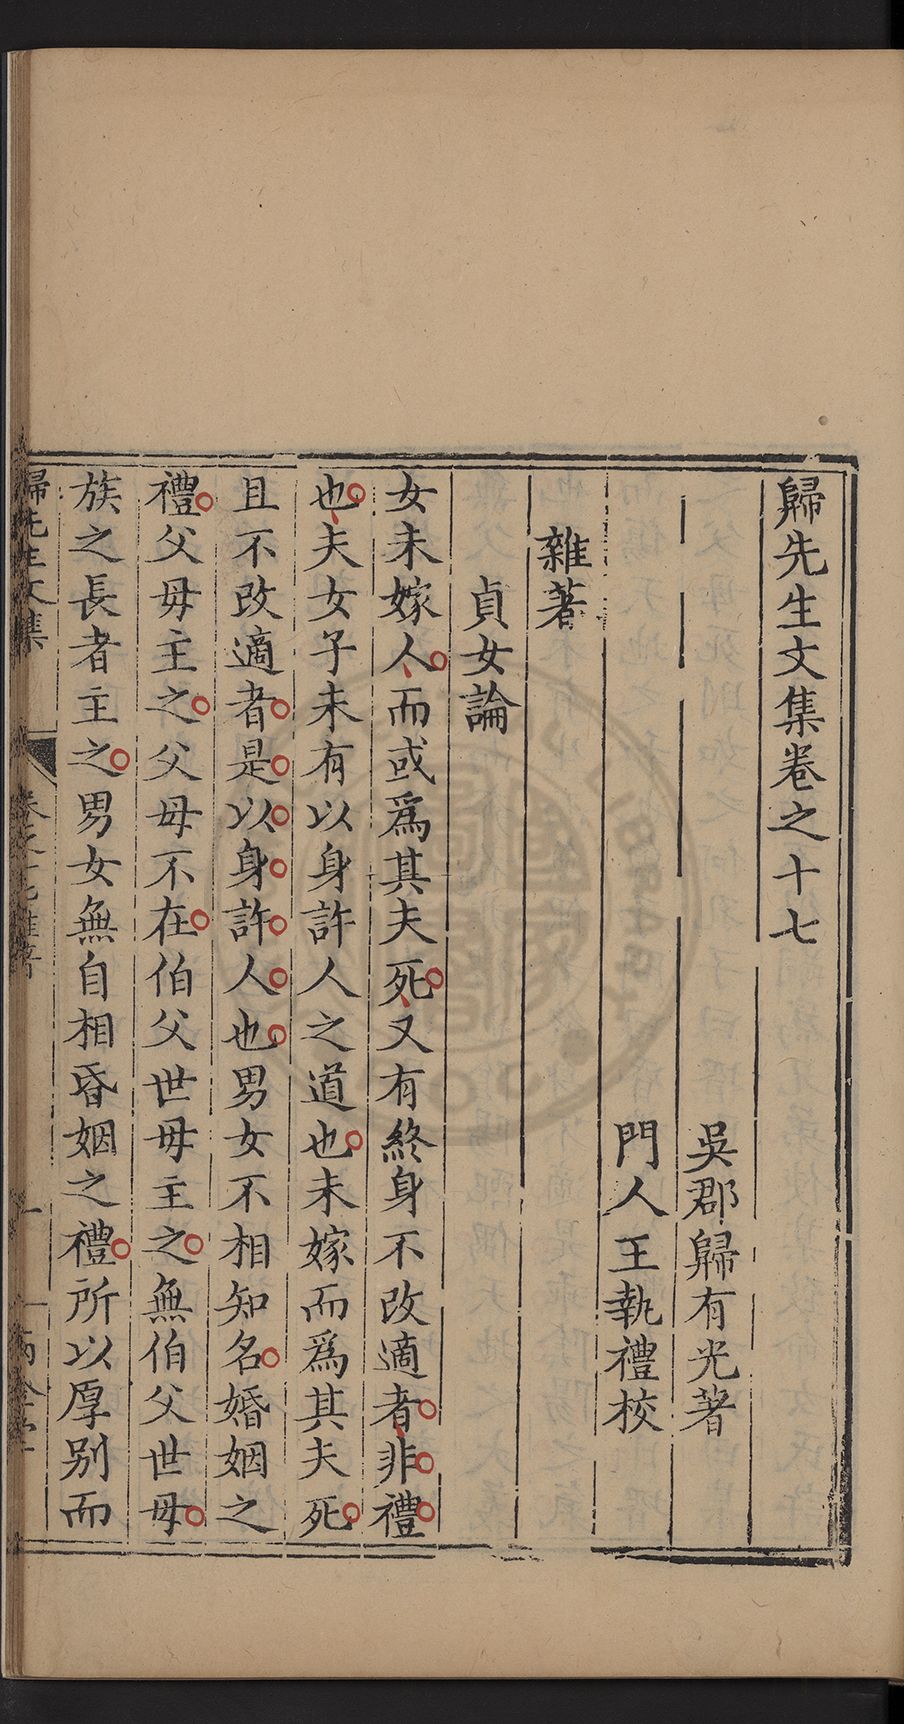 歸先生文集卷之十七
吳郡歸有光著
門人王執禮校
雜著
貞女論
女未嫁人而或爲其夫死又有終身不改適者非禮
也夫女子未有以身許人之道也未嫁而爲其夫死
且不改適者是以身許人也男女不相知名婚姻之
禮父母主之父母不在伯父世母主之無伯父世母
族之長者主之男女無自相昏姻之禮所以厚別而
歸先生文集
卷之十七雜著
一